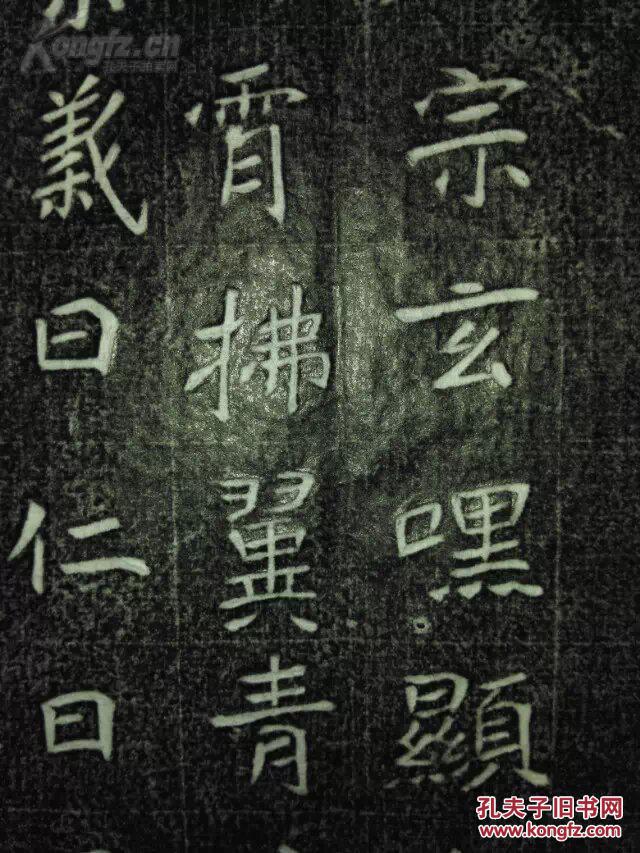 宗玄嘿顯
霄拂翼青
義曰仁曰
Kongfz.cn
孔夫子旧书网
www.Kongfz.com